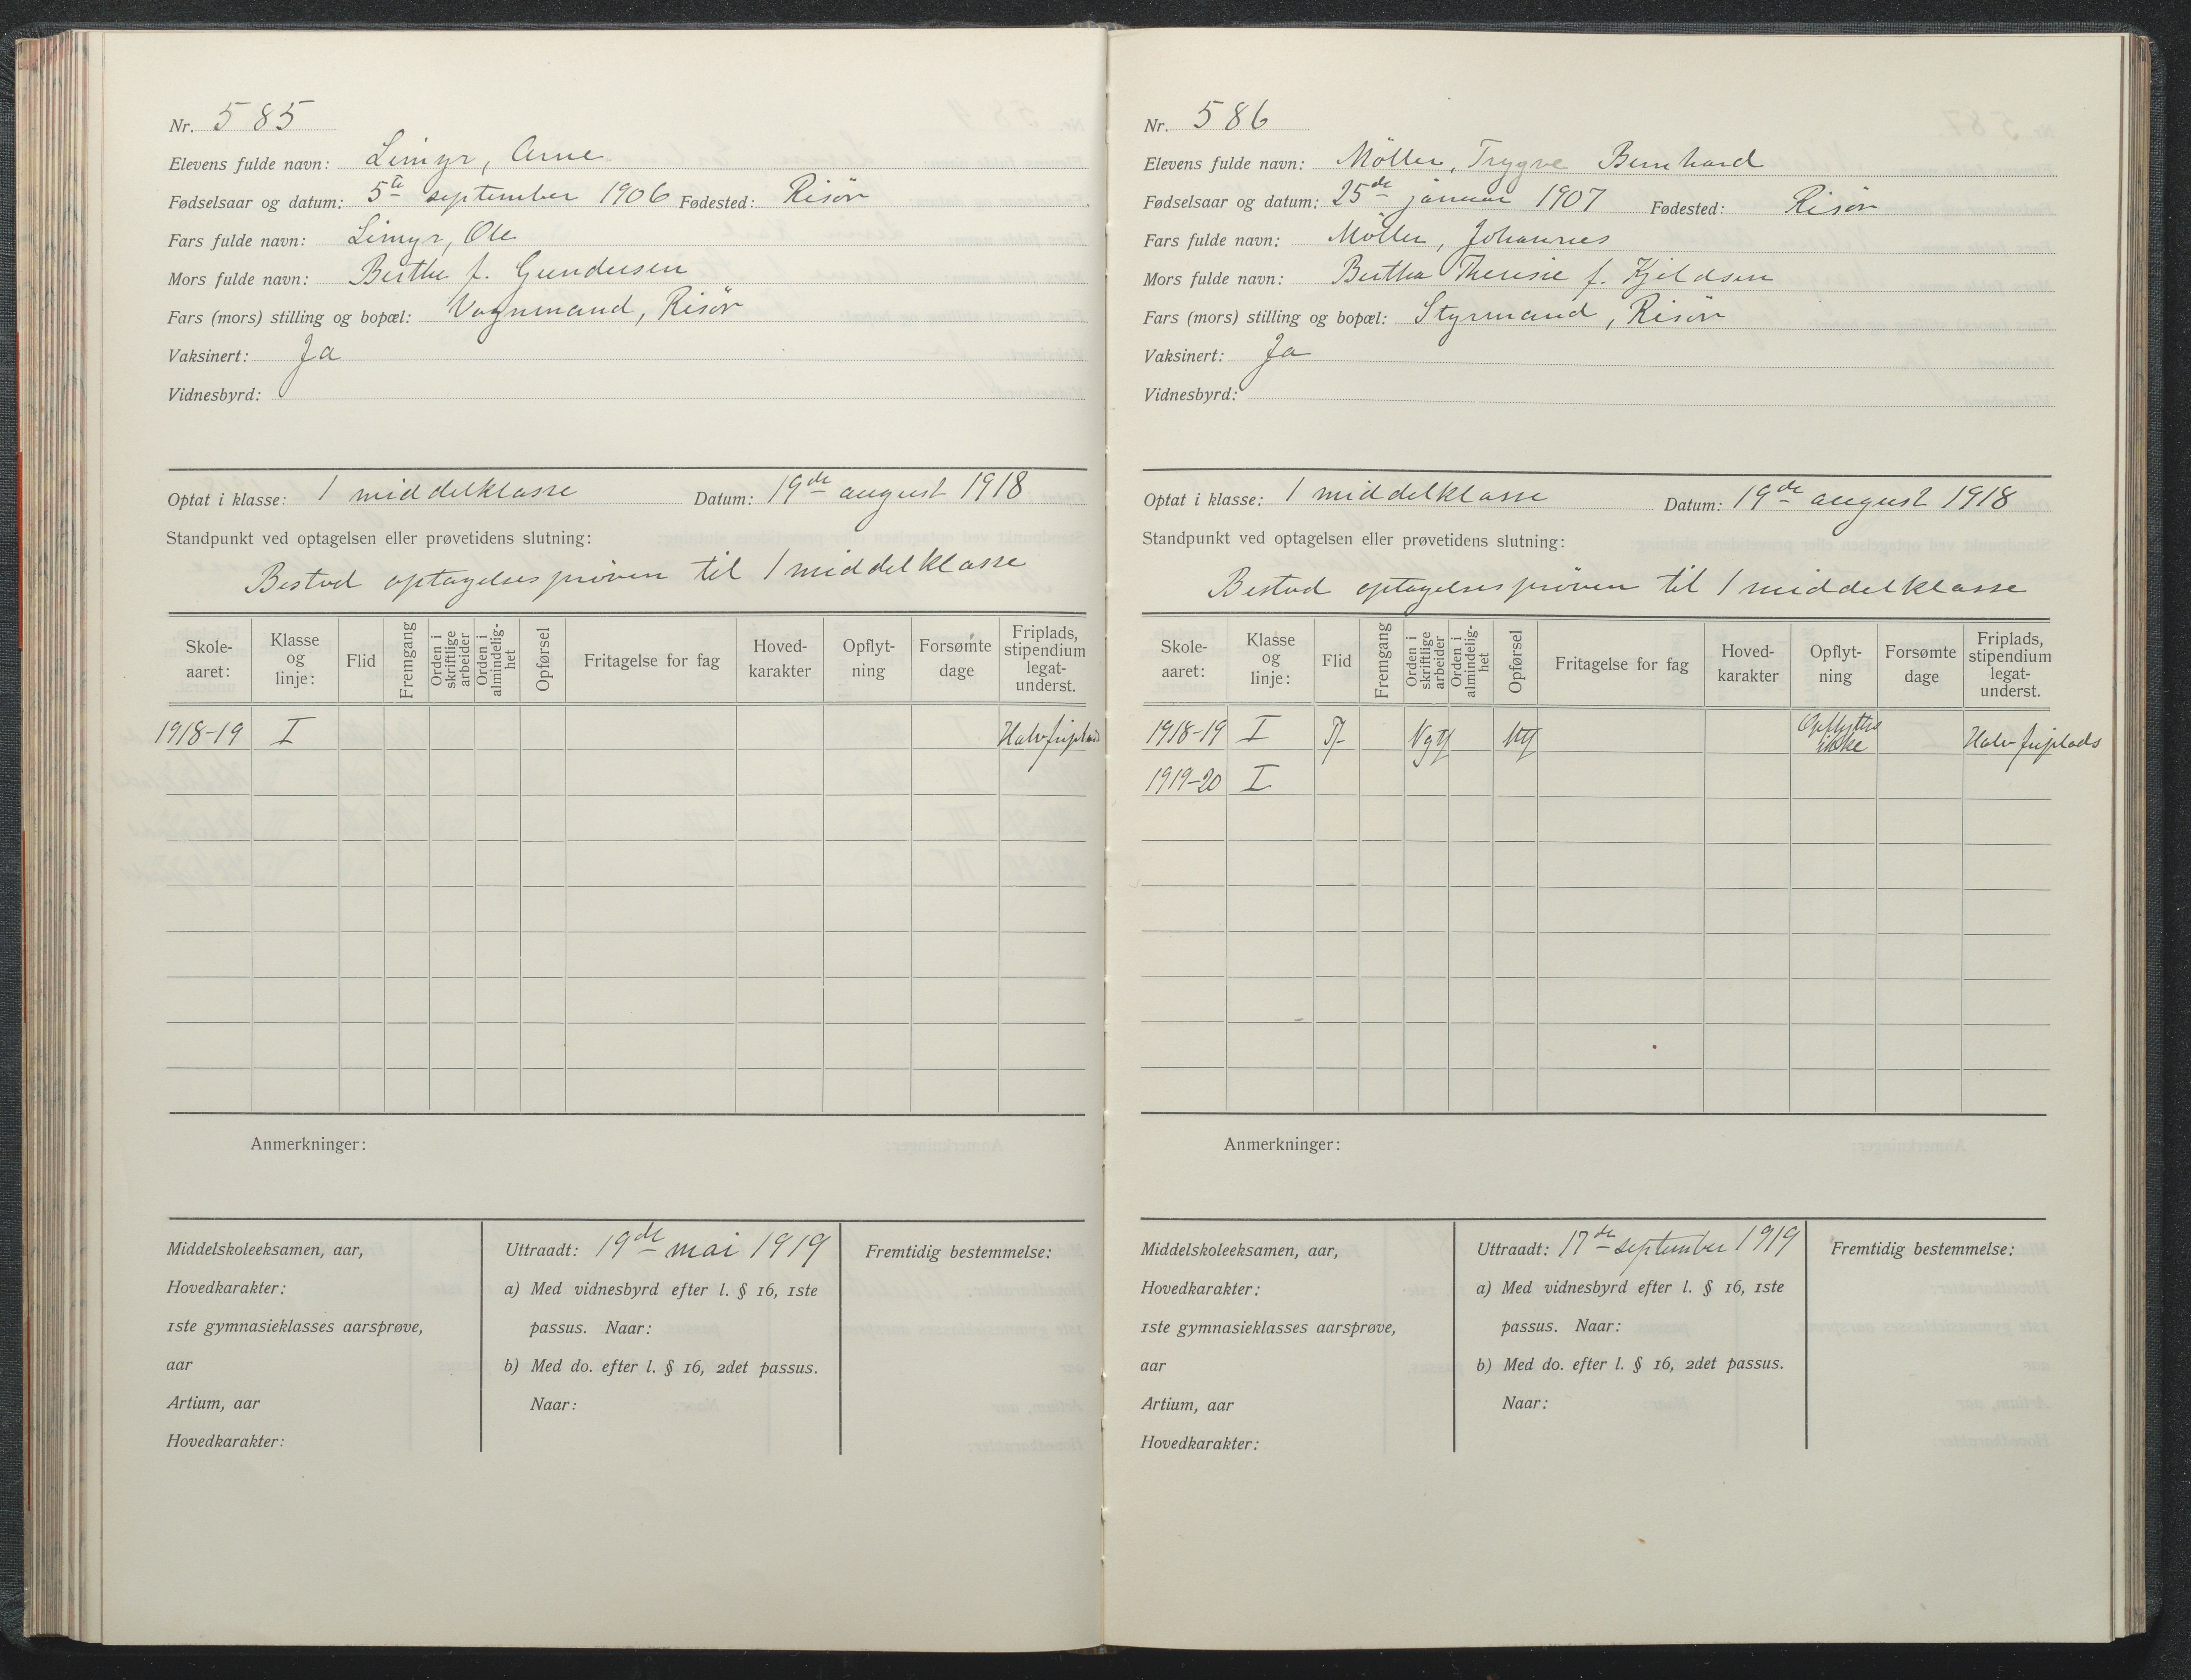 Nr. 585
Elevens fulde navn: Limyr, Arne
Fødselsaar og datum: 5te september 1906 Fødested: Risör
Fars fulde navn: Limyr, Ole
Mors fulde navn: Berthe f. Gundersen
Fars (mors) stilling og bopæl: Vognmand, Risör
Vaksinert: Ja
Vidnesbyrd:
Optat i klasse: 1 middelklasse Datum: 19de august 1918
Standpunkt ved optagelsen eller prøvetidens slutning:
Bestod optagelsesprøven til 1 middelklasse
Skole-aaret: Klasse og linje: Flid Fremgang Orden i skriftlige arbeider Orden i almindelig-het Opførsel Fritagelse for fag Hoved-karakter Opflyt-ning Forsømte dage Friplads, stipendium legat-underst.
1918-19 I Halv friplads
Anmerkninger:
Middelskoleeksamen, aar,
Hovedkarakter:
1ste gymnasieklasses aarsprøve,
aar
Artium, aar
Hovedkarakter:
Uttraadt: 19de mai 1919
a) Med vidnesbyrd efter l. § 16, 1ste
passus. Naar:
b) Med do. efter l. § 16, 2det passus.
Naar:
Fremtidig bestemmelse:
Nr. 586
Elevens fulde navn: Möller, Trygve Bernhard
Fødselsaar og datum: 25de januar 1907 Fødested: Risör
Fars fulde navn: Möller, Johannes
Mors fulde navn: Bertha Therese f. Kjeldsen
Fars (mors) stilling og bopæl: Styrmand, Risör
Vaksinert: Ja
Vidnesbyrd:
Optat i klasse: 1 middelklasse Datum: 19de august 1918
Standpunkt ved optagelsen eller prøvetidens slutning:
Bestod optagelsesprøven til 1 middelklasse
Skole-aaret: Klasse og linje: Flid Fremgang Orden i skriftlige arbeider Orden i almindelig-het Opførsel Fritagelse for fag Hoved-karakter Opflyt-ning Forsømte dage Friplads, stipendium legat-underst.
1918-19 I Opflyttes ikke Halv friplads
1919-20 I
Anmerkninger:
Middelskoleeksamen, aar,
Hovedkarakter:
1ste gymnasieklasses aarsprøve,
aar
Artium, aar
Hovedkarakter:
Uttraadt: 17de september 1919
a) Med vidnesbyrd efter l. § 16, 1ste
passus. Naar:
b) Med do. efter l. § 16, 2det passus.
Naar:
Fremtidig bestemmelse: